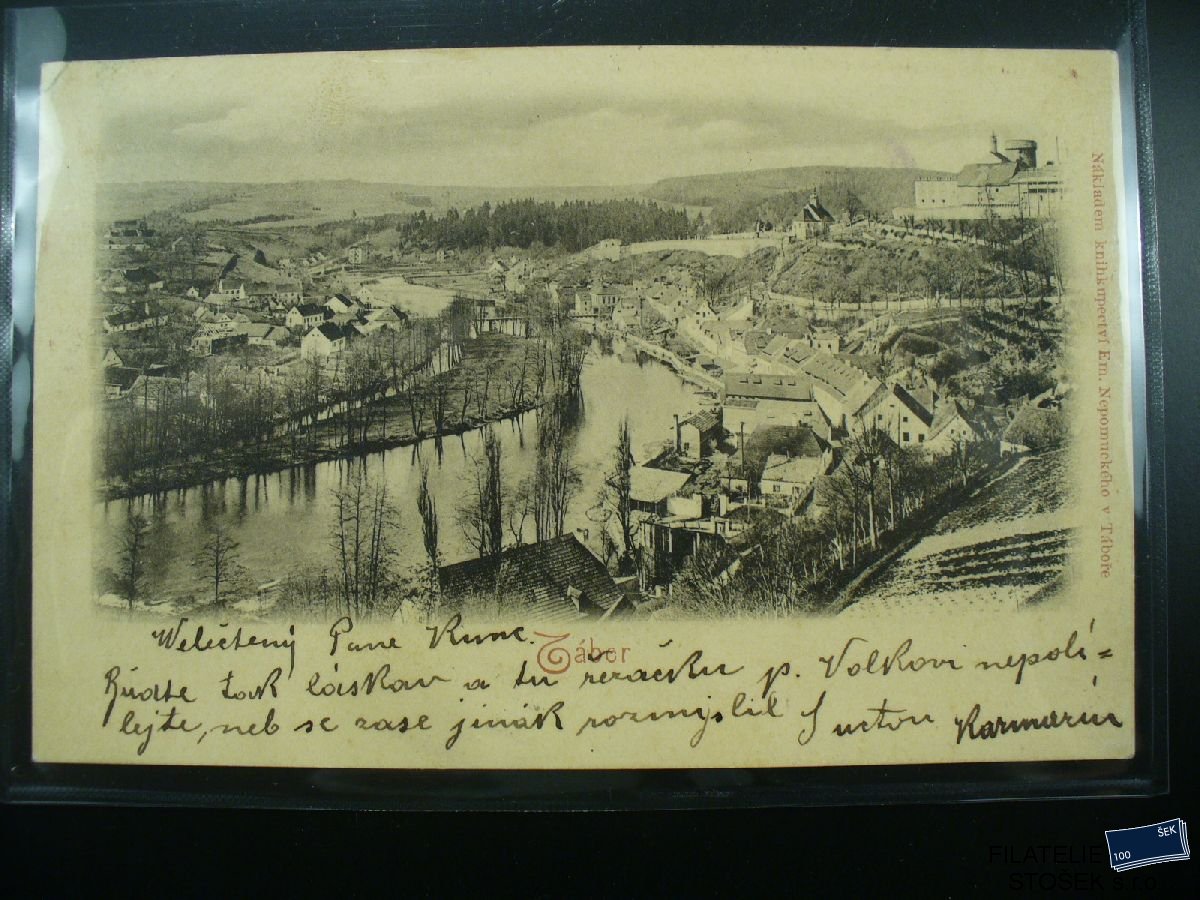 Nákladem knihkupectví Em. Nepomuckého v Táboře
Tábor
Welectený Pane Kunc.
Buďte tak láskav a tu rezačku p. Volkovi nepolí=
lejte, neb se zase jinák rozmyslil S uctou
FILATELIE
STOŠEK s.r.o.
100 ŠEK